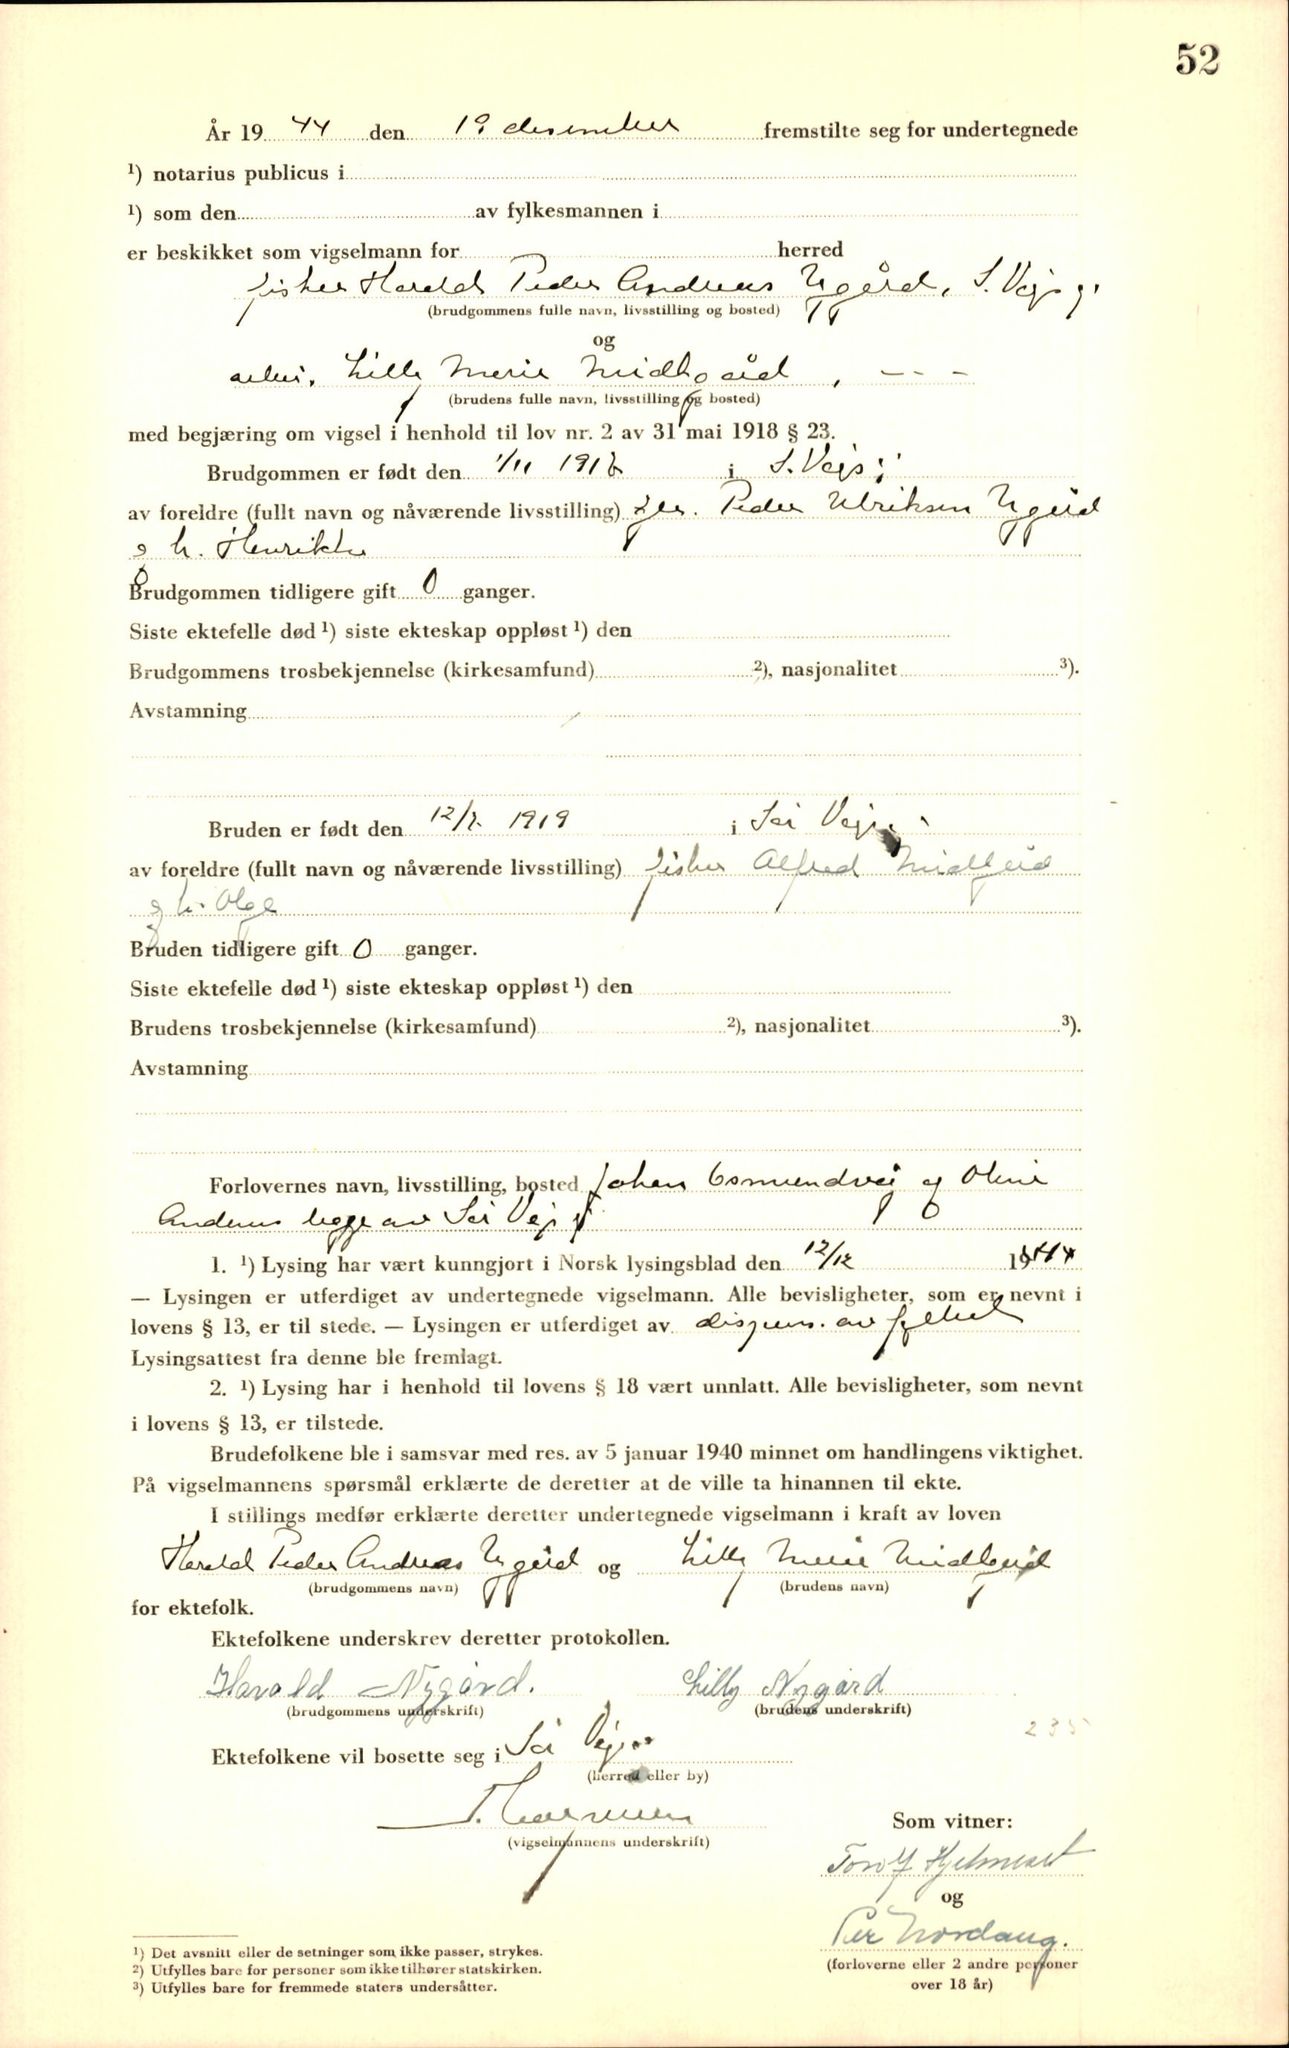 52
År 19 44 den 19 desember fremstilte seg for undertegnede
¹) notarius publicus i
¹) som den av fylkesmannen i
er beskikket som vigselmann for herred
fisker Harald Peder Andreas Nygård, S. Vågsøy
(brudgommens fulle navn, livsstilling og bosted)
og
Lilly Merie Midtgård, - - -
(brudens fulle navn, livsstilling og bosted)
med begjæring om vigsel i henhold til lov nr. 2 av 31 mai 1918 § 23.
Brudgommen er født den 1/11 191 i S. Vågsøy
av foreldre (fullt navn og nåværende livsstilling) Peder Ulriksen Nygård
og h. Henrikke
Brudgommen tidligere gift 0 ganger.
Siste ektefelle død ¹) siste ekteskap oppløst ¹) den
Brudgommens trosbekjennelse (kirkesamfund) ²), nasjonalitet ³).
Avstamning
Bruden er født den 12/2 1919 i Sør Vågsøy
av foreldre (fullt navn og nåværende livsstilling) fisker Alfred Midtgård
og h. Olga
Bruden tidligere gift 0 ganger.
Siste ektefelle død ¹) siste ekteskap oppløst ¹) den
Brudens trosbekjennelse (kirkesamfund) ²), nasjonalitet ³).
Avstamning
Forlovernes navn, livsstilling, bosted Johan Osmundvåg og Oline
begge av Sør Vågsøy
1. ¹) Lysing har vært kunngjort i Norsk lysingsblad den 12/12 1944
— Lysingen er utferdiget av undertegnede vigselmann. Alle bevisligheter, som er nevnt i
lovens § 13, er til stede. — Lysingen er utferdiget av dispens. av fylket
Lysingsattest fra denne ble fremlagt.
2. ¹) Lysing har i henhold til lovens § 18 vært unnlatt. Alle bevisligheter, som nevnt
i lovens § 13, er tilstede.
Brudefolkene ble i samsvar med res. av 5 januar 1940 minnet om handlingens viktighet.
På vigselmannens spørsmål erklærte de deretter at de ville ta hinannen til ekte.
I stillings medfør erklærte deretter undertegnede vigselmann i kraft av loven
Harald Peder Andreas Nygård og Lilly Merie Midtgård
(brudgommens navn) (brudens navn)
for ektefolk.
Ektefolkene underskrev deretter protokollen.
Harald Nygård. Lilly Nygård
(brudgommens underskrift) (brudens underskrift)
235
Ektefolkene vil bosette seg i Sør Vågsøy
(herred eller by)
(vigselmannens underskrift)
Som vitner:
Torolf Hjelmeset
og
Per Nordang.
(forloverne eller 2 andre personer
over 18 år)
¹) Det avsnitt eller de setninger som ikke passer, strykes.
²) Utfylles bare for personer som ikke tilhører statskirken.
³) Utfylles bare for fremmede staters undersåtter.